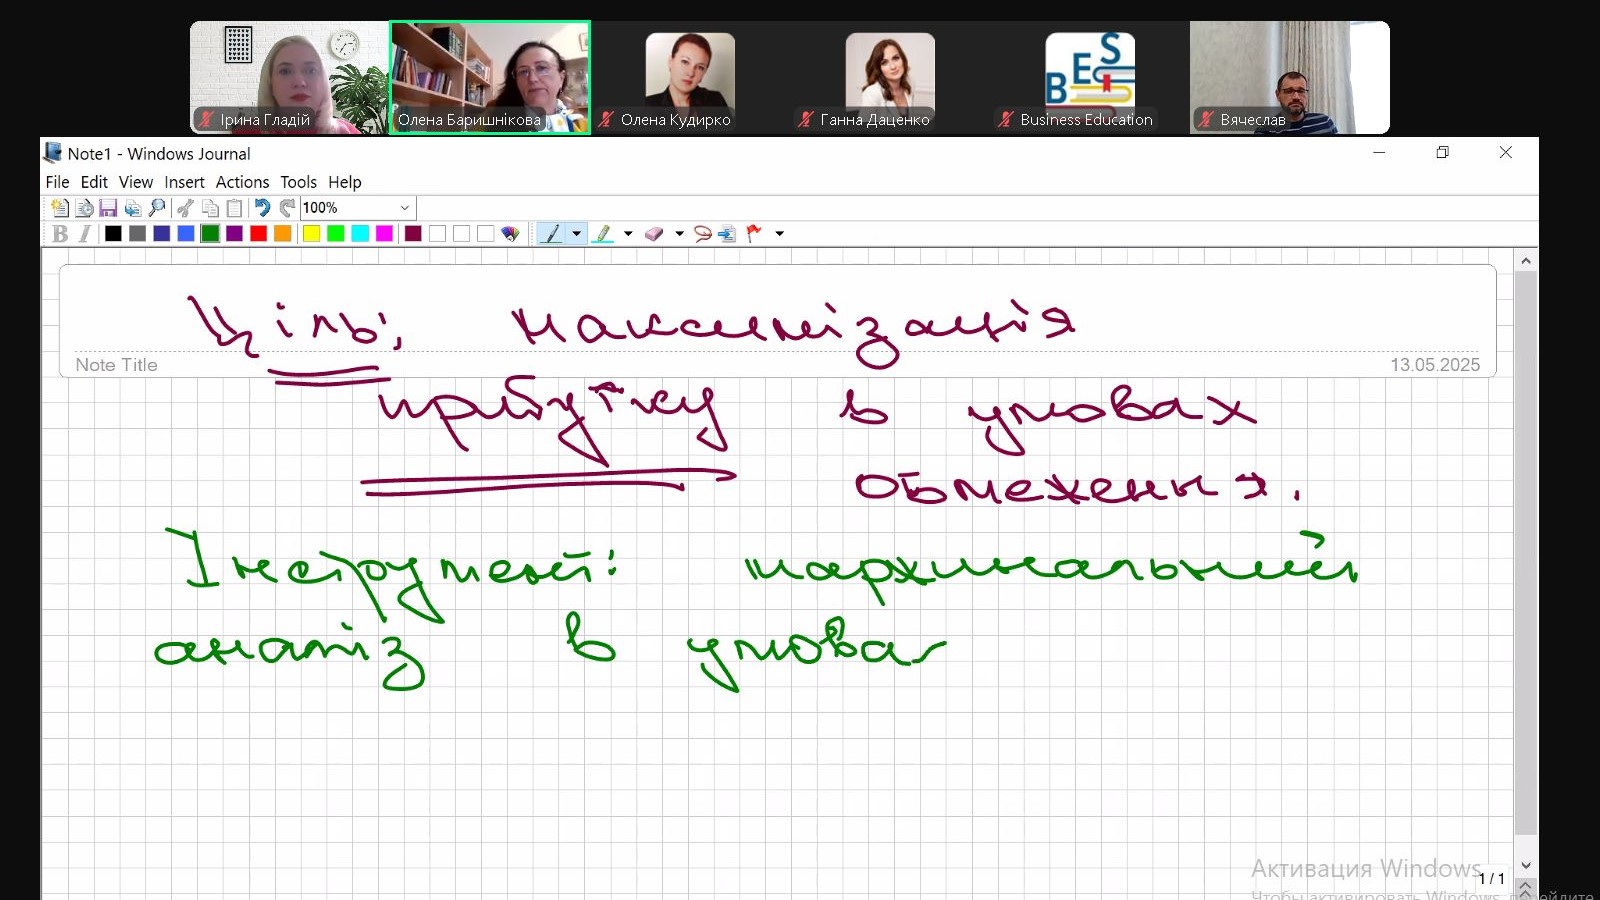 Ірина Гладій
Олена Баришнікова
Олена Кудирко
Ганна Даценко
BES
Business Education
Вячеслав
Note1 - Windows Journal
File Edit View Insert Actions Tools Help
100%
B I
Ціль: максимізація
Note Title
13.05.2025
прибутку в умовах
обмежень.
Інструмент: маржинальний
аналіз в умовах
Активация Windows
1 / 1
Чтобы активировать Windows, перейдите